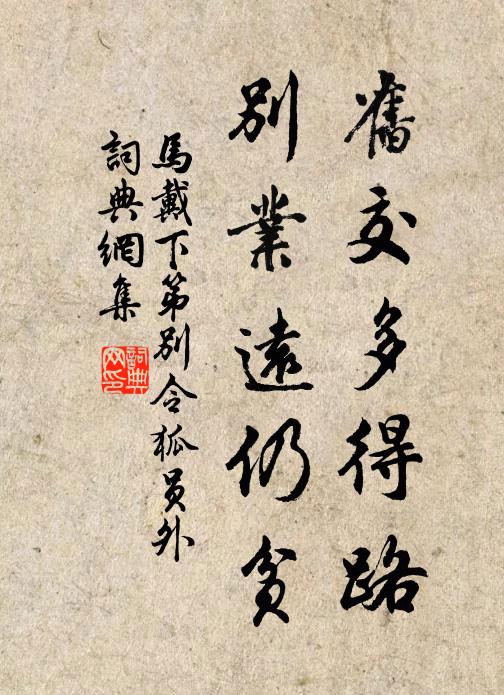 舊交多得路
別業遠仍貧
馬戴下第別令狐員外
詞典網集
詞典
网印